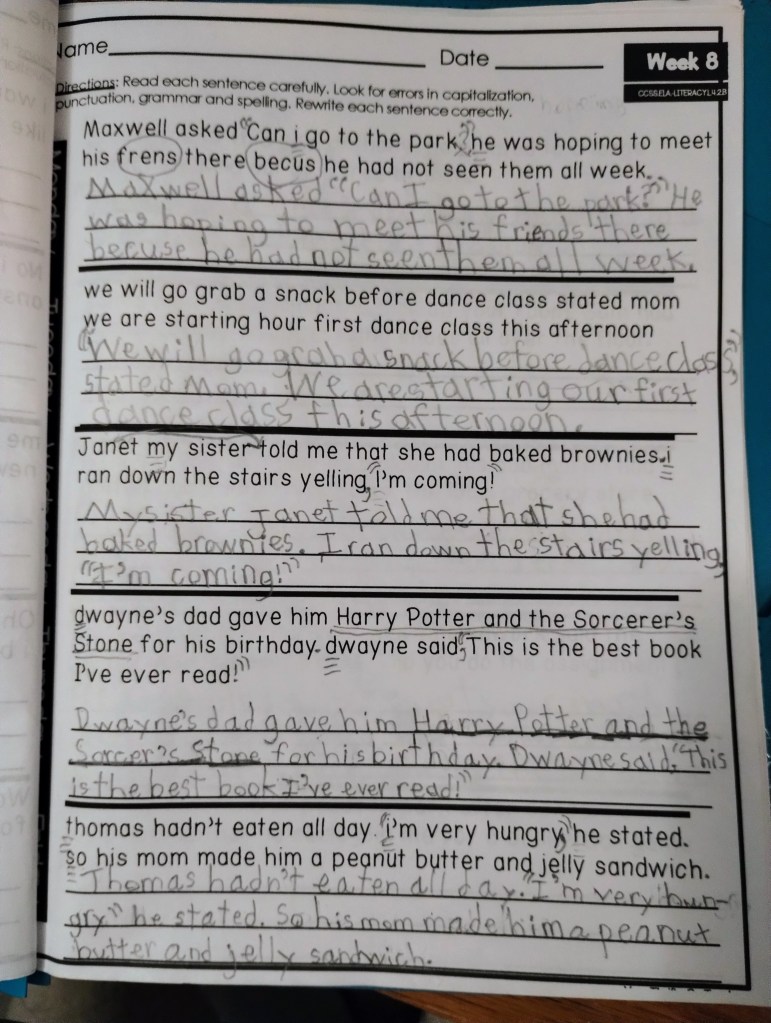 Name
Date
Week 8
CCSS.ELA-LITERACY.L.4.2B
Directions: Read each sentence carefully. Look for errors in capitalization,
punctuation, grammar and spelling. Rewrite each sentence correctly.
Maxwell asked "Can i go to the park?" he was hoping to meet
his frens there becus he had not seen them all week.
Maxwell asked "Can I go to the park?" He
was hoping to meet his friends there
becuse he had not seen them all week.
we will go grab a snack before dance class stated mom
we are starting hour first dance class this afternoon
"We will go grab a snack before dance class",
stated Mom. We are starting our first
dance class this afternoon.
Janet my sister told me that she had baked brownies. i
ran down the stairs yelling, "I'm coming!"
My sister Janet told me that she had
baked brownies. I ran down the stairs yelling,
"I'm coming!"
dwayne's dad gave him Harry Potter and the Sorcerer's
Stone for his birthday. dwayne said, "This is the best book
I've ever read!"
Dwayne's dad gave him Harry Potter and the
Sorcer's Stone for his birthday. Dwayne said, "This
is the best book I've ever read!"
thomas hadn't eaten all day. "i'm very hungry," he stated.
so his mom made him a peanut butter and jelly sandwich.
Thomas hadn't eaten all day. "I'm very hun-
gry" he stated. So his mom made him a peanut
butter and jelly sandwich.